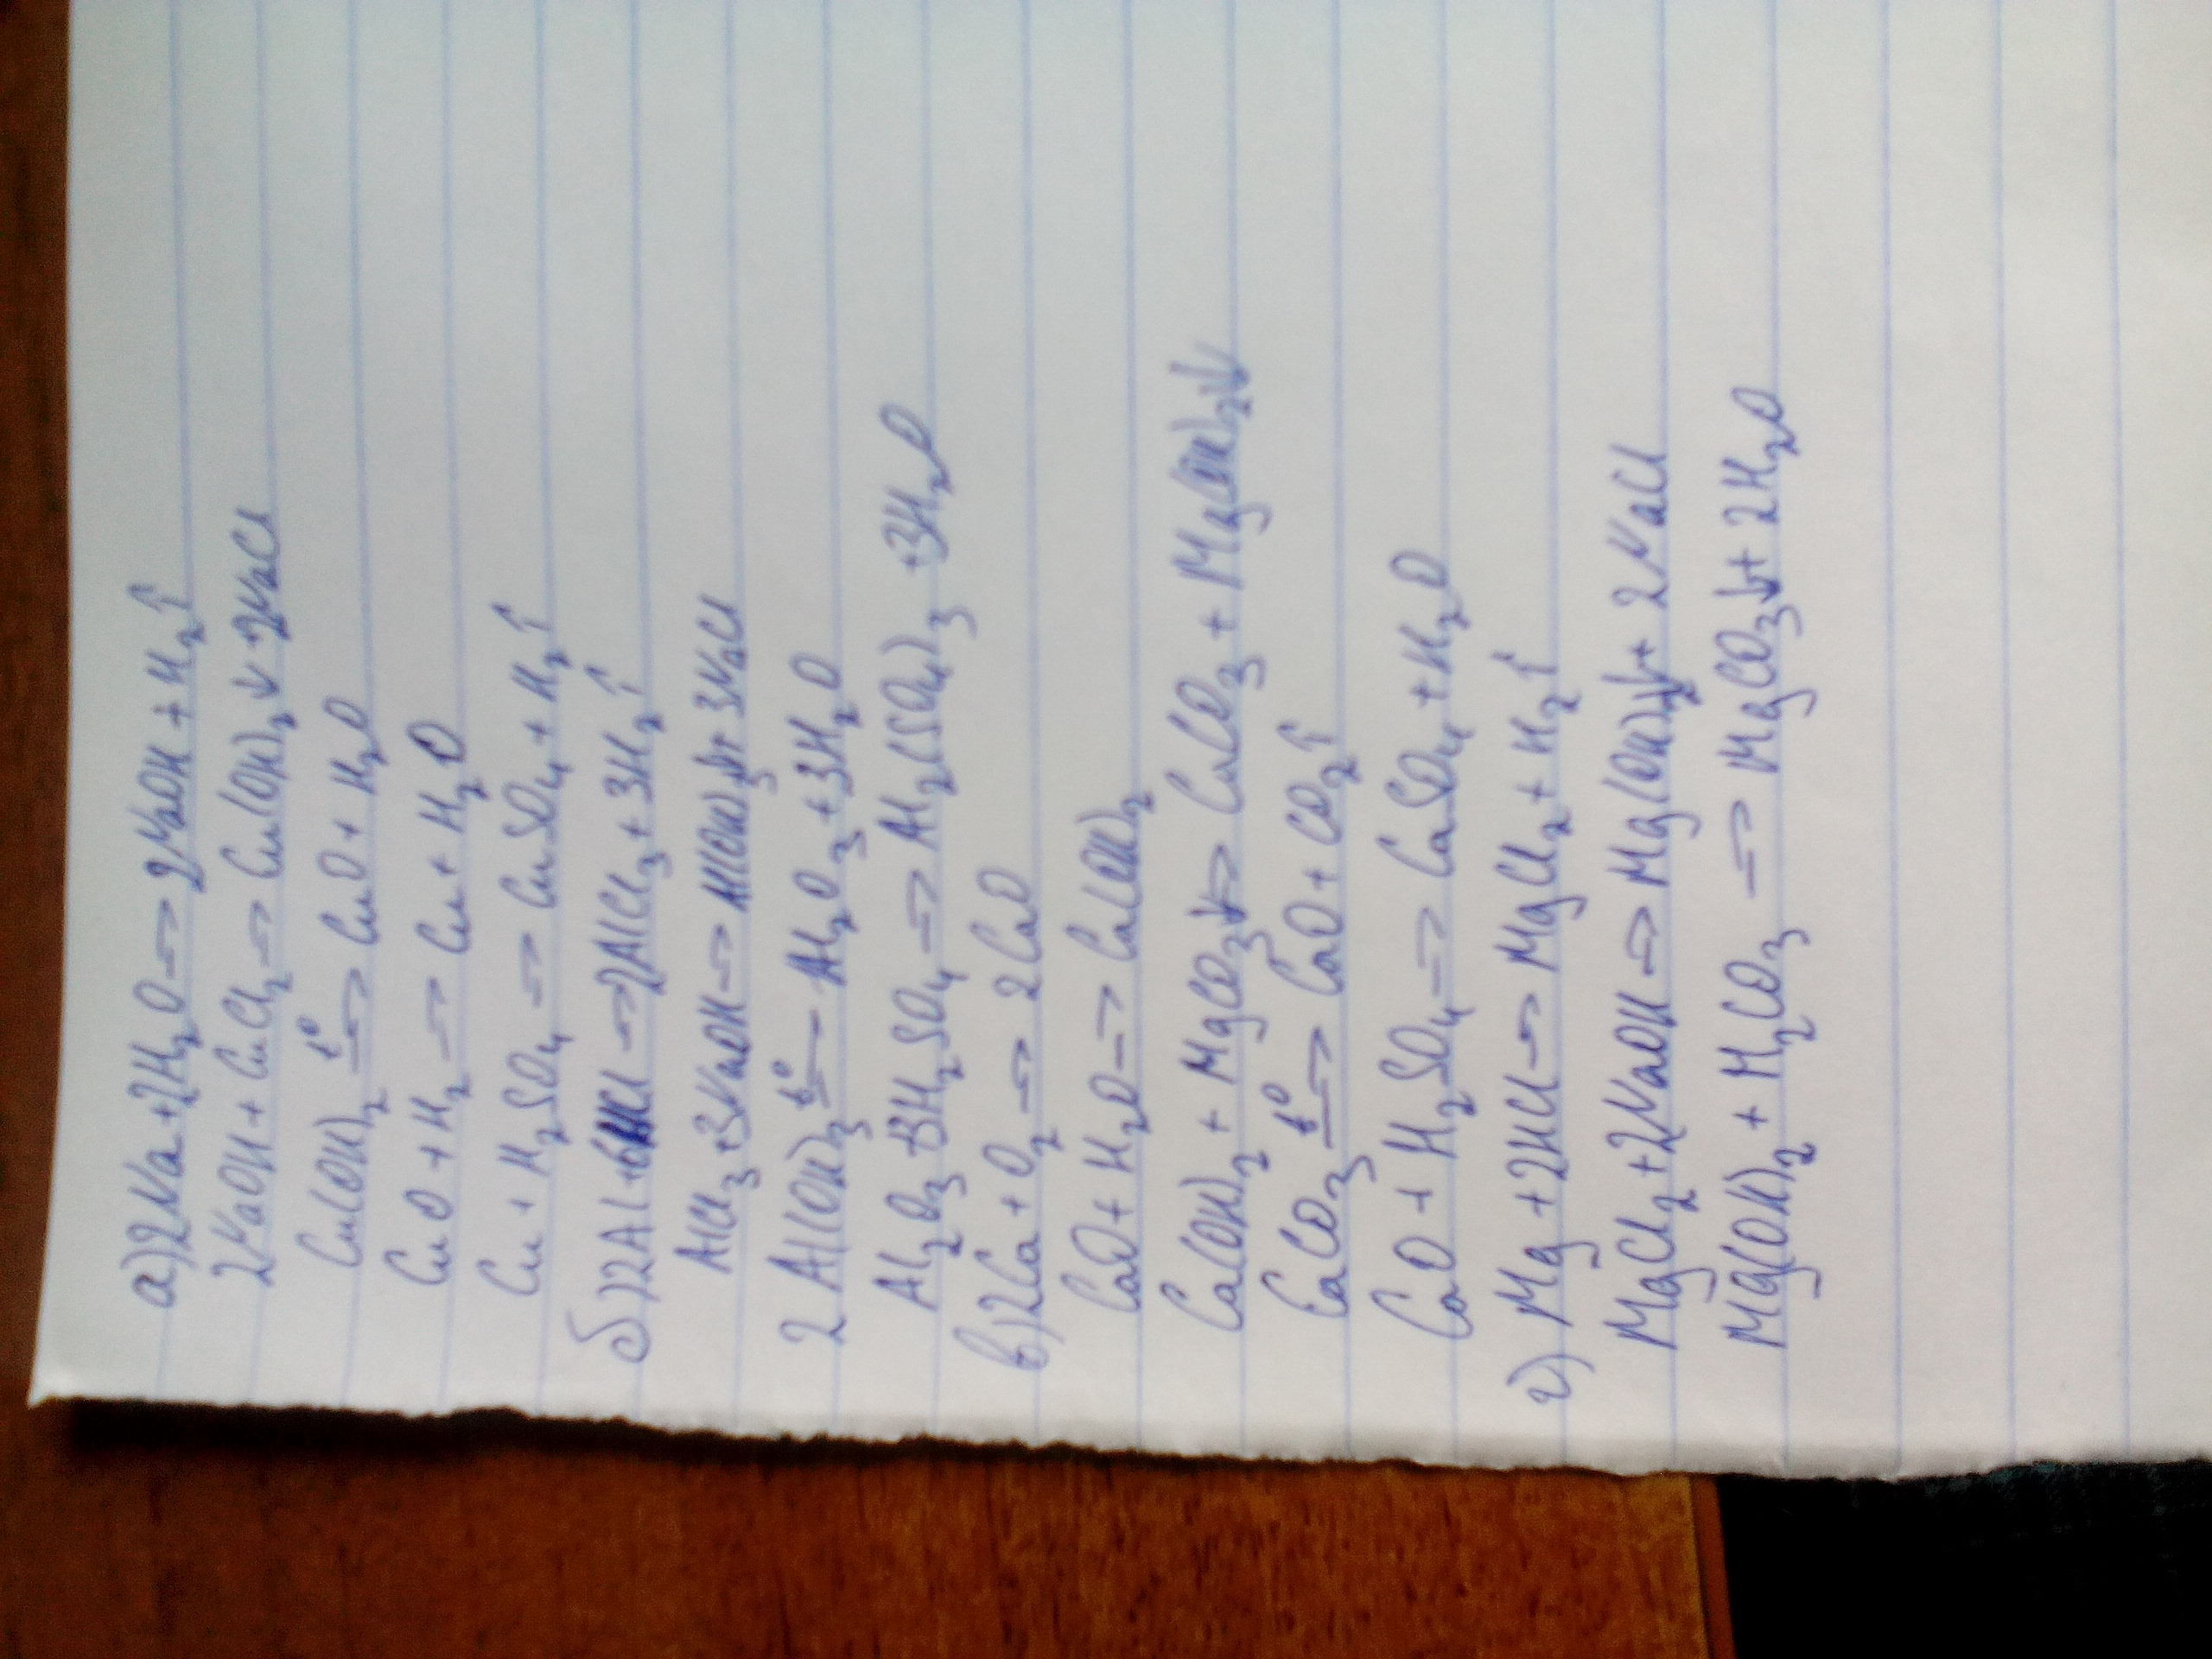 а) 2Na + 2H₂O → 2NaOH + H₂↑
2NaOH + CuCl₂ → Cu(OH)₂↓ + 2NaCl
Cu(OH)₂ t°→ CuO + H₂O
CuO + H₂ → Cu + H₂O
Cu + H₂SO₄ → CuSO₄ + H₂↑
б) 2Al + 6HCl → 2AlCl₃ + 3H₂↑
AlCl₃ + 3NaOH → Al(OH)₃↓ + 3NaCl
2Al(OH)₃ t°→ Al₂O₃ + 3H₂O
Al₂O₃ + 3H₂SO₄ → Al₂(SO₄)₃ + 3H₂O
в) 2Ca + O₂ → 2CaO
CaO + H₂O → Ca(OH)₂
Ca(OH)₂ + MgCO₃↓ → CaCO₃ + Mg(OH)₂↓
CaCO₃ t°→ CaO + CO₂↑
CaO + H₂SO₄ → CaSO₄ + H₂O
г) Mg + 2HCl → MgCl₂ + H₂↑
MgCl₂ + 2NaOH → Mg(OH)₂↓ + 2NaCl
Mg(OH)₂ + H₂CO₃ → MgCO₃↓ + 2H₂O